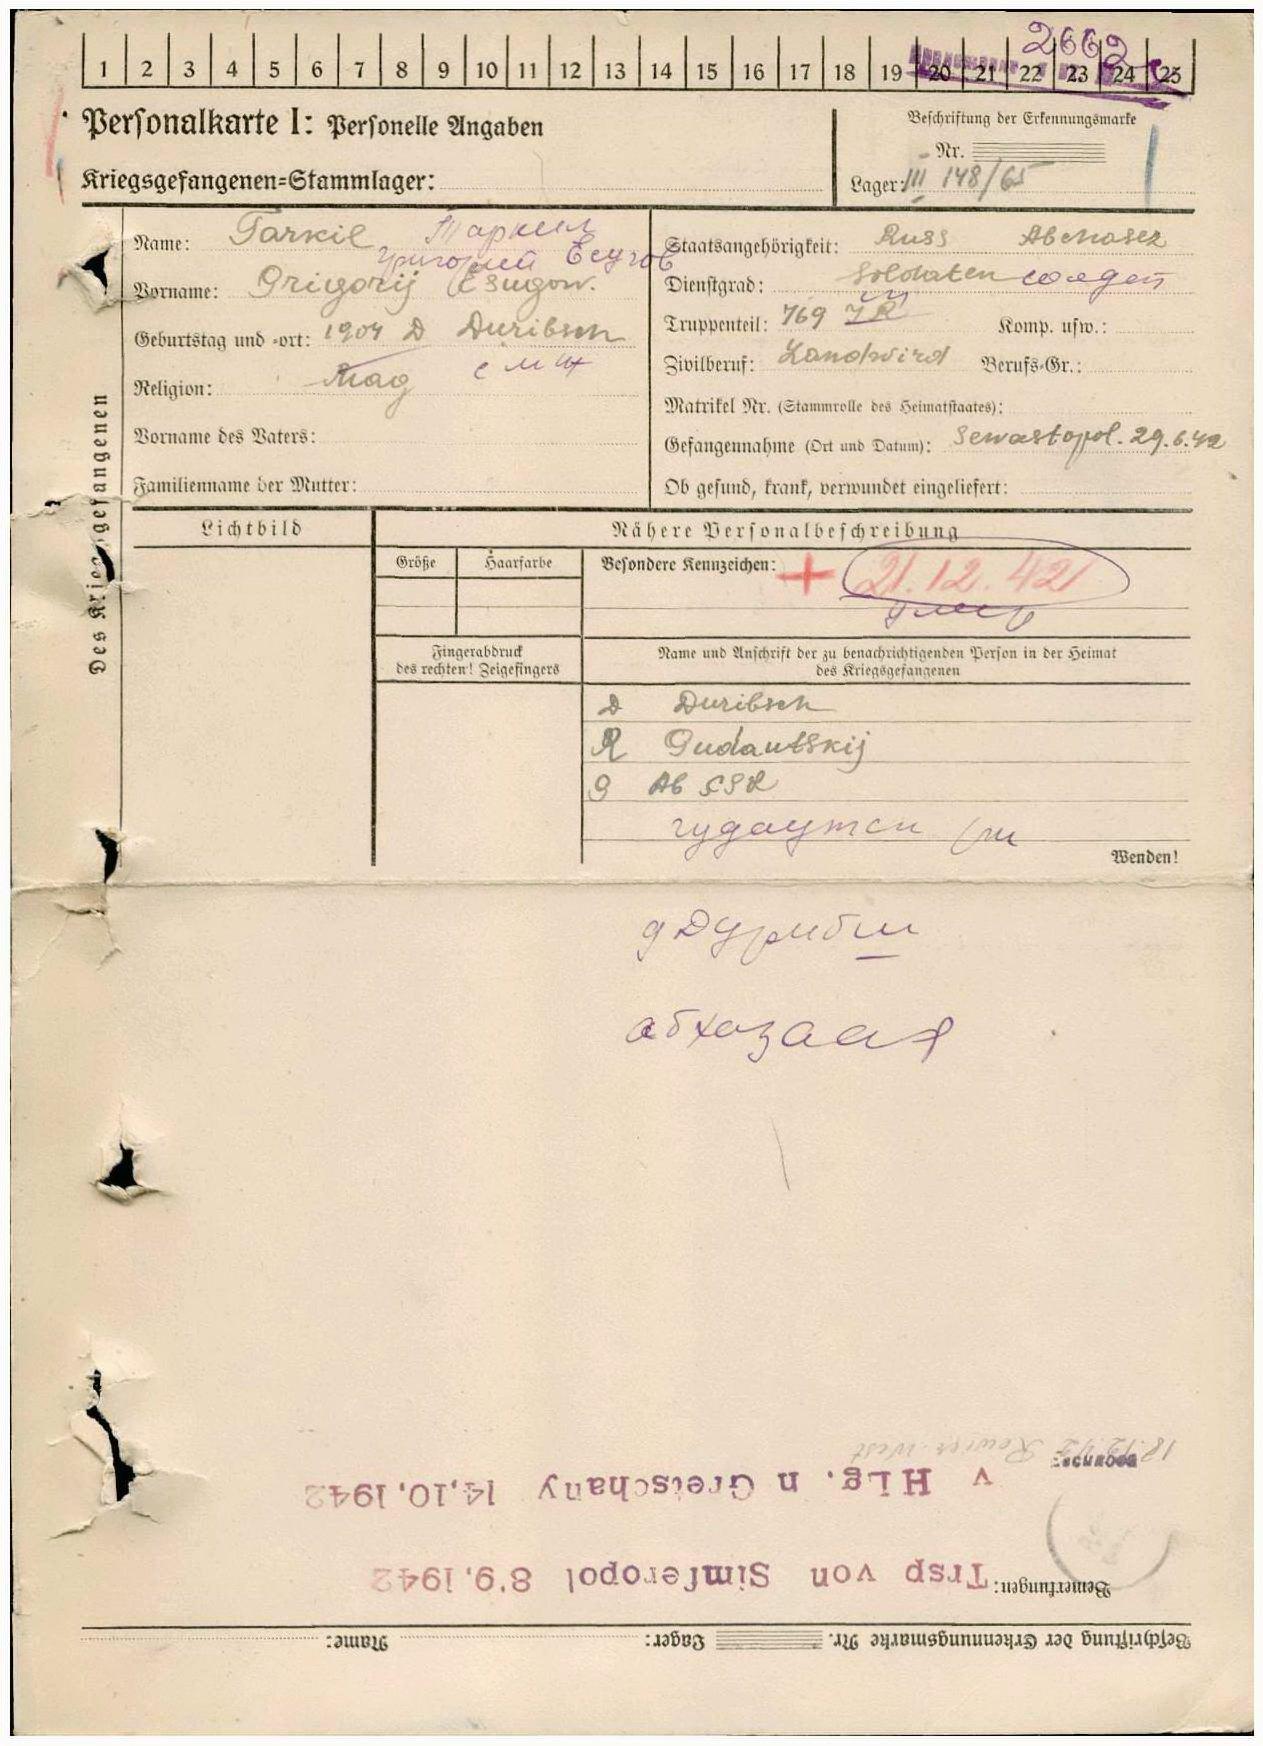 2662
1 2 3 4 5 6 7 8 9 10 11 12 13 14 15 16 17 18 19 20 21 22 23 24 25
Personalkarte I: Personelle Angaben
Beschriftung der Erkennungsmarke
Nr.
Kriegsgefangenen=Stammlager:
Lager: III 148/65
Des Kriegsgefangenen
Name: Tarkil Таркил
Григорий Есугов
Vorname: Grigorij Esugow.
Geburtstag und -ort: 1904 D Duribsch
Religion:
Vorname des Vaters:
Familienname der Mutter:
Staatsangehörigkeit: Russ Abchasez
Dienstgrad: Soldaten солдат
Truppenteil: 769 IR Komp. usw.:
Zivilberuf: Landwird Berufs-Gr.:
Matrikel Nr. (Stammrolle des Heimatstaates):
Gefangennahme (Ort und Datum): Sewastopol. 29.6.42
Ob gesund, krank, verwundet eingeliefert:
Lichtbild
Nähere Personalbeschreibung
Größe
Haarfarbe
Besondere Kennzeichen: + 21.12.42
умер
Fingerabdruck
des rechten! Zeigefingers
Name und Anschrift der zu benachrichtigenden Person in der Heimat
des Kriegsgefangenen
D Duribsch
R Gudautskij
G Ab SSR
гудаутски
Wenden!
д Дурибш
Beschriftung der Erkennungsmarke Nr. Lager: Name:
Bemerkungen: Trsp von Simferopol 8.9.1942
v HLg. n Gretschany 14.10.1942
18.12.42 Revier-West